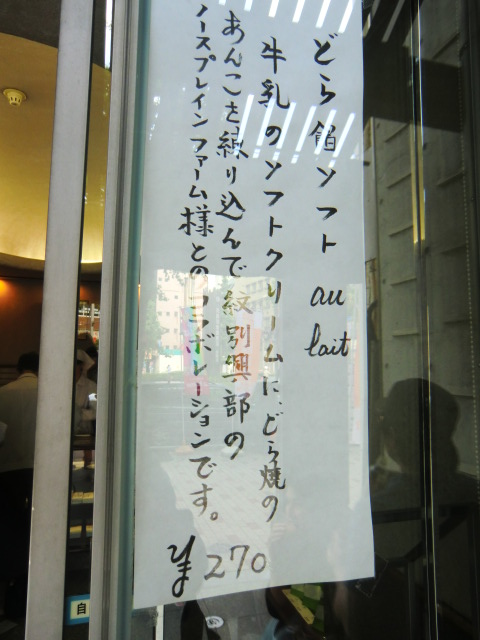 どら餡ソフト au lait
牛乳のソフトクリームに、どら焼の
あんこを練り込んで紋別興部の
ノースプレインファーム様とのコラボレーションです。
¥270
自